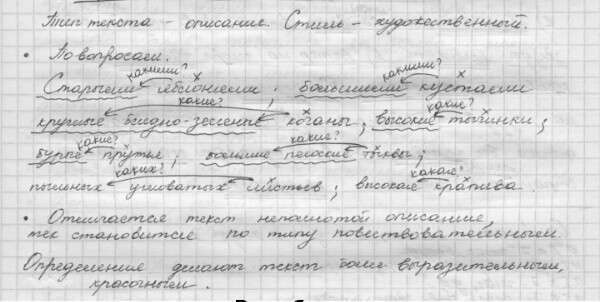 Тип текста - описание. Стиль - художественный.
• По вопросам.
какими? какими?
Старыми яблонями; большими кустами
какие? какие?
круглые бледно-зеленые кочаны; высокие тычинки;
какие? какие?
бурые прутья; большие плоские тыквы;
каких? какая?
пыльных угловатых листьев; высокая крапива.
• Отличается текст неполнотой описания,
тек становится по типу повествовательным.
Определения делают текст более выразительным,
красочным.